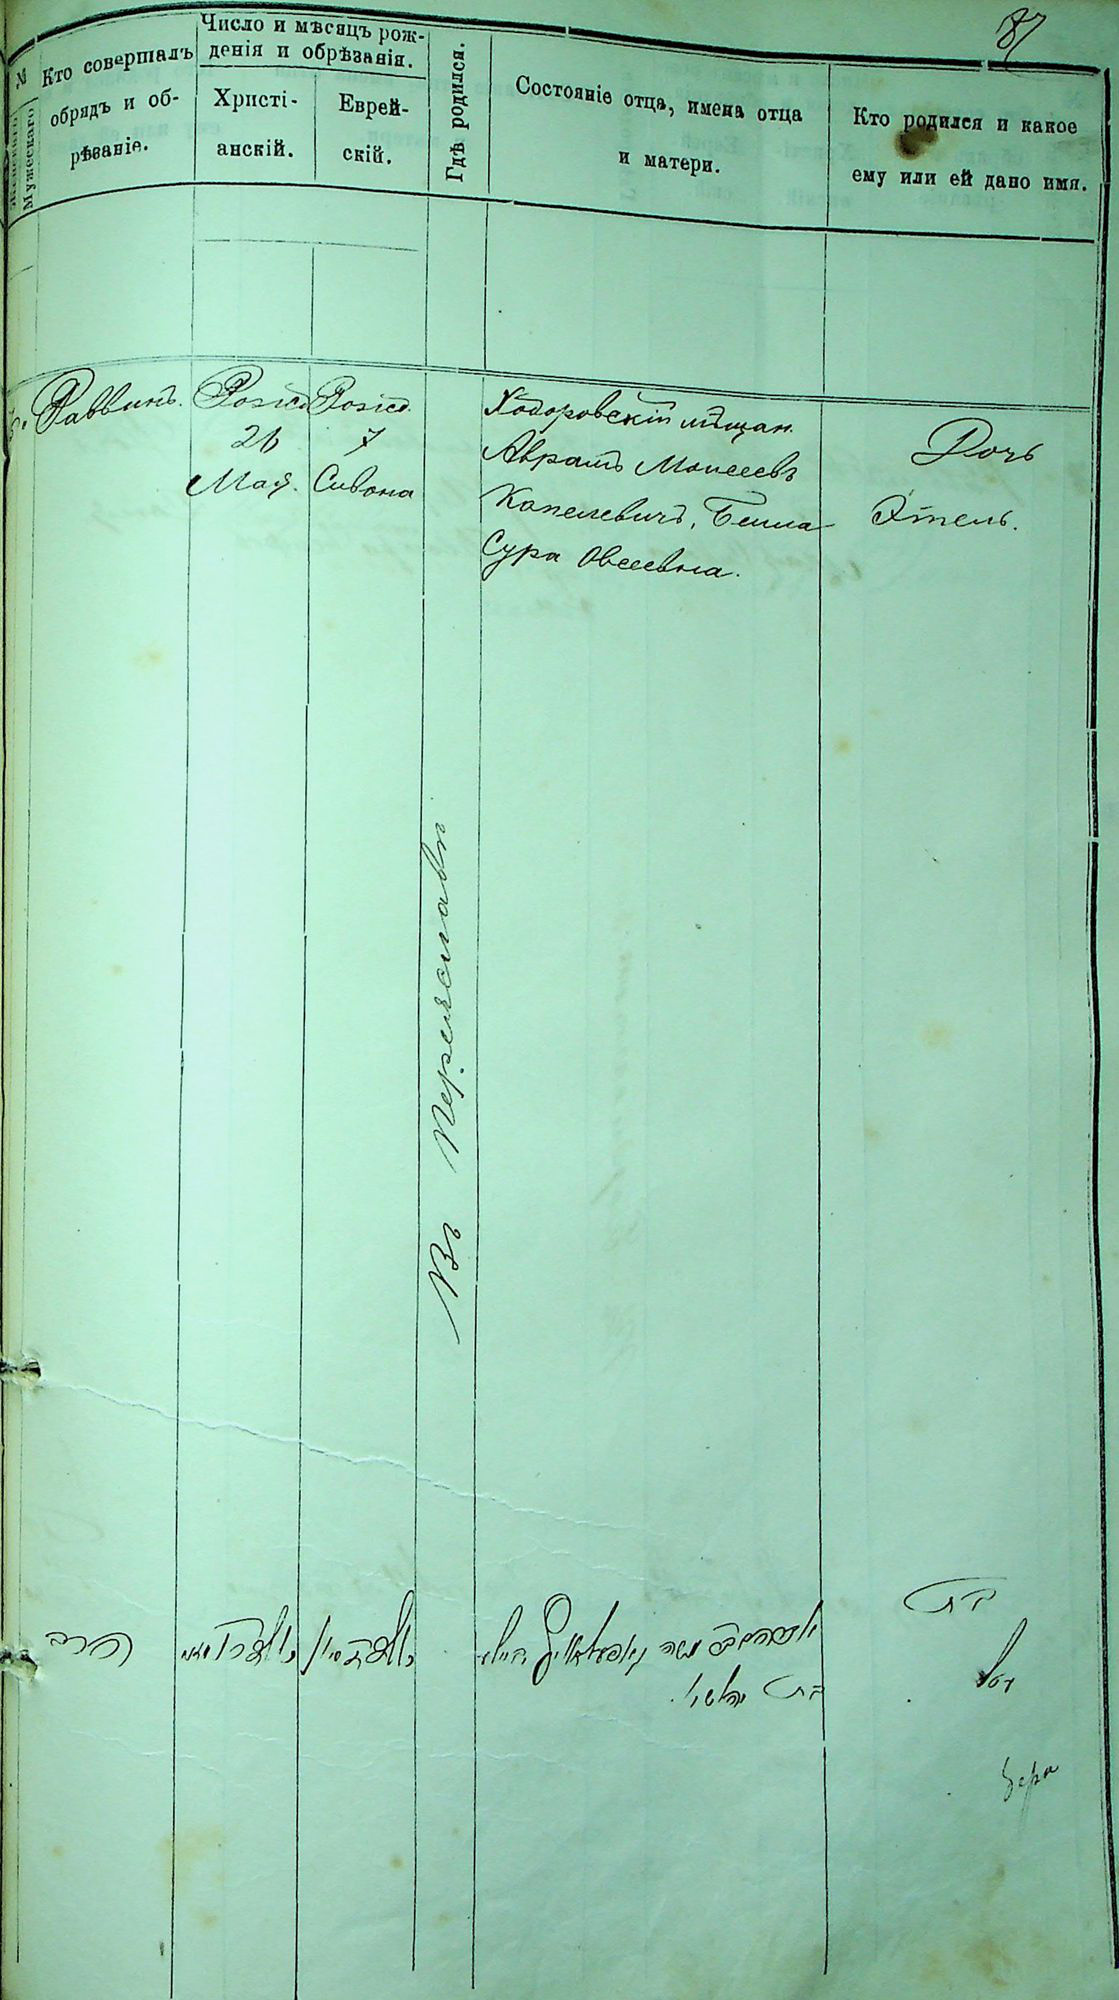 87
№
Женскаго
Мужескаго
Кто совершалъ
обрядъ и об-
рѣзаніе.
Число и мѣсяцъ рож-
денія и обрѣзанія.
Христі-
анскій.
Еврей-
скій.
Гдѣ родился.
Состояніе отца, имена отца
и матери.
Кто родился и какое
ему или ей дано имя.
Раввинъ.
26
Мая.
7
Сивона
Въ Переяславѣ
Ходоровскій мѣщан.
Аврамъ Моисеевъ
Капелевичъ, Бейла
Сура Овсеевна.
Дочь
Этель.
הרב
משה
בת
בת